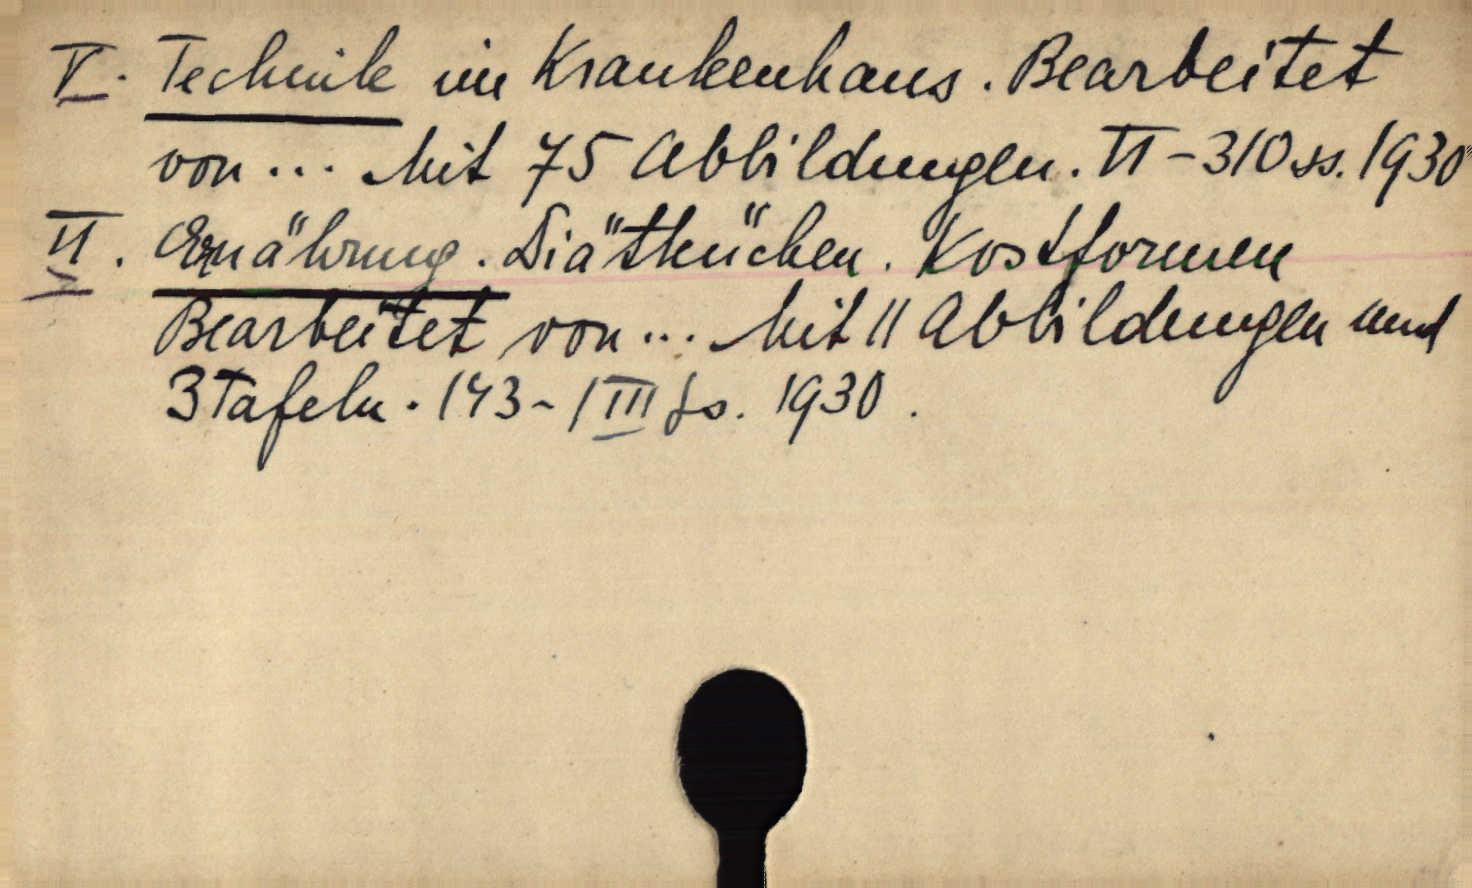 V. Technik im Krankenhaus. Bearbeitet
von... Mit 75 Abbildungen. VI – 310 ss. 1930
VI. Ernährung. Diätküchen. Kostformen
Bearbeitet von... Mit 11 Abbildungen und
3 Tafeln. 143 ~ / VIII Ss. 1930.